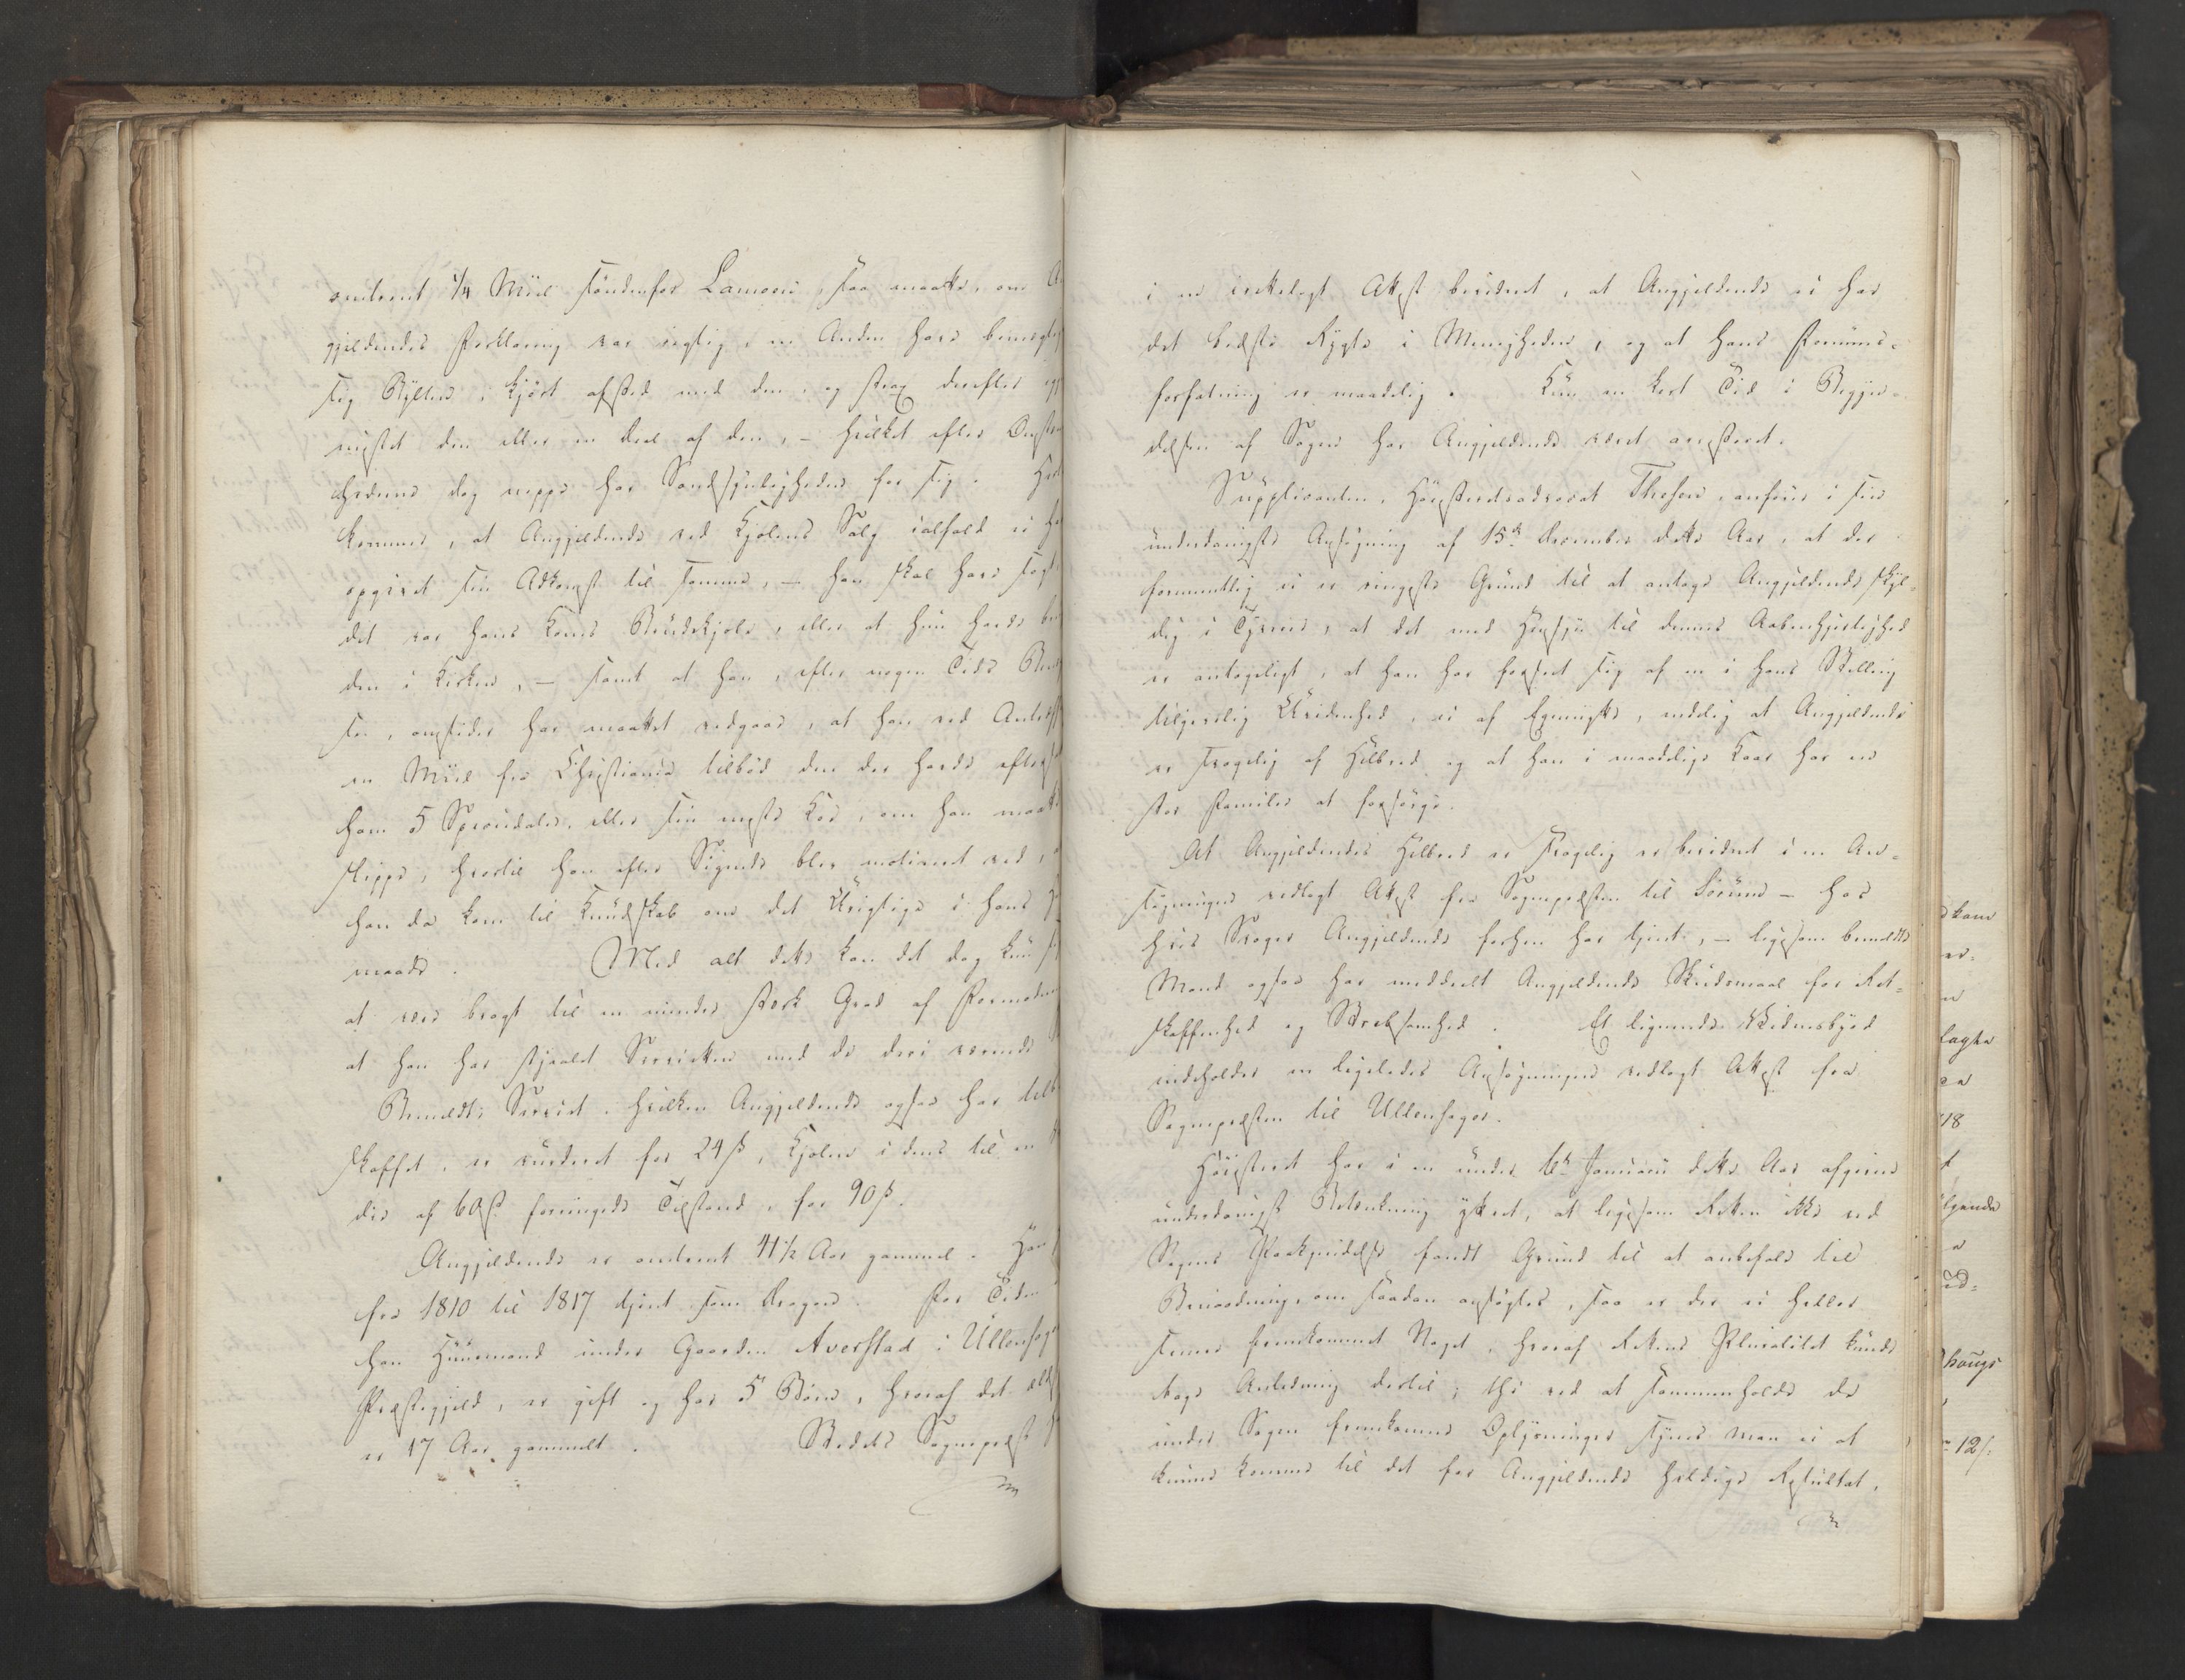 omtrent 1/4 Miil söndenfor Lamoen, saa maatte, om A
gjeldendes Forklaring var rigtig, en Anden have bemægtig
sig Bylten, kjört afsted med den, og strax derefter igj
mistet den eller en Deel af den, – hvilket efter Omstæn
hederne dog neppe har Sandsynligheden for sig. Hert
kommer, at Angjeldende ved Kjolens Salg ialfald ei ha
opgivet sin Adkomst til samme, – han skal have sagt
det var hans Kones Brudekjole, eller at hun havde bru
den i Kirken, – samt at han, efter nogen Tids Be
sen, omsider har maattet vedgaae, at han ved Antræff
en Miil fra Christiania tilbød den der havde eftersat
ham 5 Speciedaler, eller sin neste Koe, om han maatte
slippe, hvortil han efter Sigende blev motiveret ved, a
han da kom til Kundskab om det Urigtige i hans
maade. Med alt dette kan det dog kun si
at være bragt til en mindre sterk Grad af Formodning
at han har stjaalet Servieten med de deri værende
Bemeldte Serviet, hvilken Angjeldende ogsaa har tilve
skaffet, er vurderet for 24 ß, Kjolen i dens til en
die af 60 ß forringede Tilstand, for 90 ß.
Angjeldende er omtrent 41 1/2 Aar gammel. Han
fra 1810 til 1817 tjent som Dragon. For Tiden
han Huusmand under Gaarden Averstad i Ullensager
Præstegjeld, er gift og har 5 Børn, hvoraf det ældste
er 17 Aar gammelt. Stedets Sognepræst
i en fremlagt Attest bevidnet, at Angjeldende ei har
det bedste Rygte i Menigheden, og at hans Formues-
forfatning er maadelig. Kun en kort Tid i Begyn-
delsen af Sagen har Angjeldende været arresteret.
Supplicanten, Höiesteretsadvocat Thesen, anförer i sin
underdanigste Ansögning af 15de December dette Aar, at der
formeentlig ei er ringeste Grund til at antage Angjeldende skyl-
dig i Tyverie, at det med Hensyn til dennes Aabenhjertighed
er antageligt, at han har forseet sig af en i hans Stilling
tilgivelig Uvidenhed, ei af Egennytte, endelig at Angjeldende
er svagelig af Helbred og at han i maadelige Kaar har en
stor Familie at forsörge.
At Angjeldendes Helbred er svagelig er bevidnet i en An-
sögningen vedlagt Attest fra Sognepræsten til Sörum – hos
hvis Svoger Angjeldende forhen har tjent, – ligesom bemeldte
Mand ogsaa har meddeelt Angjeldende Skudsmaal for Ret-
skaffenhed og Stræbsomhed. Et lignende Vidnesbyrd
indeholder en ligeledes Ansögningen vedlagt Attest fra
Sognepræsten til Ullensager.
Höiesteret har i en under 16de Januarii dette Aar afgiven
underdanigst Betænkning yttret, at ligesom Retten ikke ved
Sagens Paakjendelse fandt Grund til at anbefale til
Benaadning, om saadan ansögtes, saa er der ei heller
senere fremkommet Noget, hvoraf Rettens Pluralitet kunde
tage Anledning dertil; thi ved at sammenholde de
under Sagen fremkomne Oplysninger synes man ei at
kunne komme til det for Angjeldende heldige Resultat,